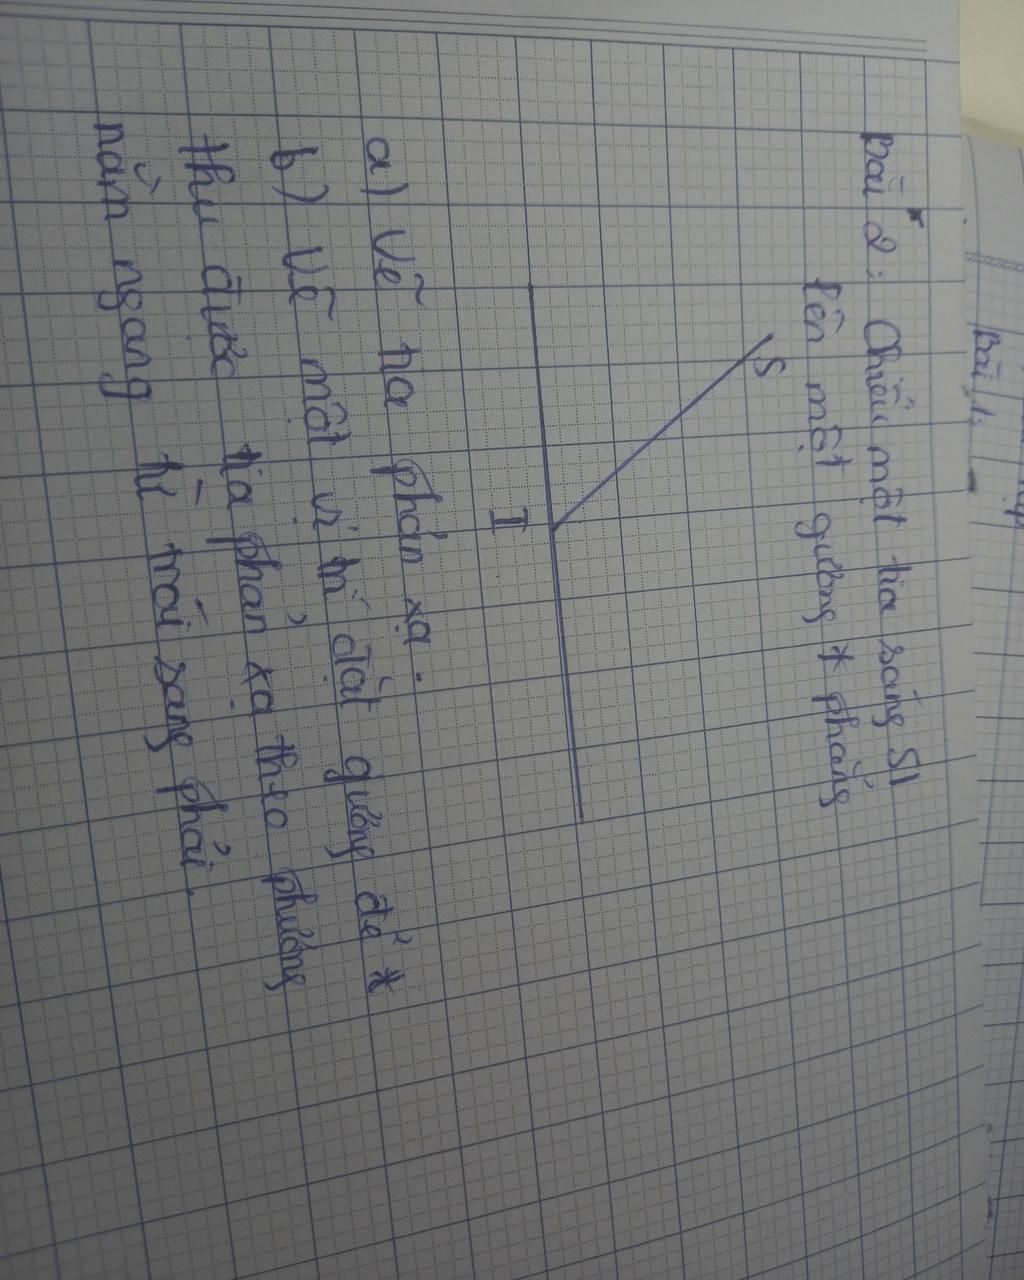 Bài 1:
Bài 2: Chiếu một tia sáng SI
lên một gương * phẳng
S
I
a) Vẽ tia phản xạ.
b) Vẽ một vị trí đặt gương để *
thu được tia phản xạ theo phương
nằm ngang từ trái sang phải.